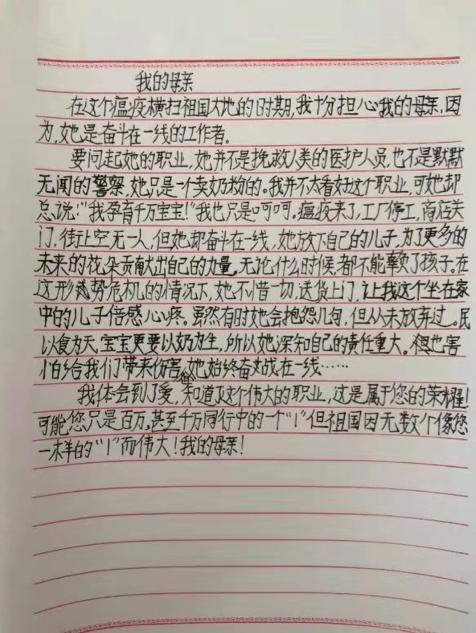 我的母亲
在这个瘟疫横扫祖国大地的时期,我十分担心我的母亲,因
为,她是奋斗在一线的工作者。
要问起她的职业,她并不是挽救人类的医护人员,也不是默默
无闻的警察,她只是一个卖奶粉的。我并不太看好这个职业,可她却
总说:"我孕育千万宝宝!"我也只是呵呵。瘟疫来了,工厂停工,商店关
门,街上空无一人,但她却奋斗在一线,她放下自己的儿子,为了更多的
未来的花朵贡献出自己的力量。无论什么时候,都不能辜负了孩子。在
这形势危机的情况下,她不惜一切,送货上门,让我这个坐在家
中的儿子倍感心疼。虽然有时她会抱怨几句,但从未放弃过。民
以食为天,宝宝更要以奶为生,所以她深知自己的责任重大。她也害
怕给我们带来伤害,但她始终奋战在一线……
我体会到了爱,知道了这个伟大的职业,这是属于您的荣耀!
可能,您只是百万,甚至千万同行中的一个"1"但祖国因无数个像您
一样的"1"而伟大!我的母亲!